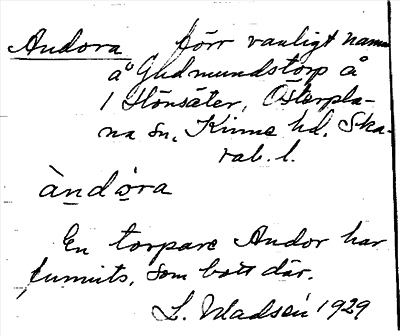 Andora förr vanligt namn
å Gudmundstorp å
1 Hönsäter, Österpla-
na sn, Kinne hd, Ska-
rab. l.
àndo̱ra
En torpare Andor har
funnits, som bott där.
L. Wadsén 1929